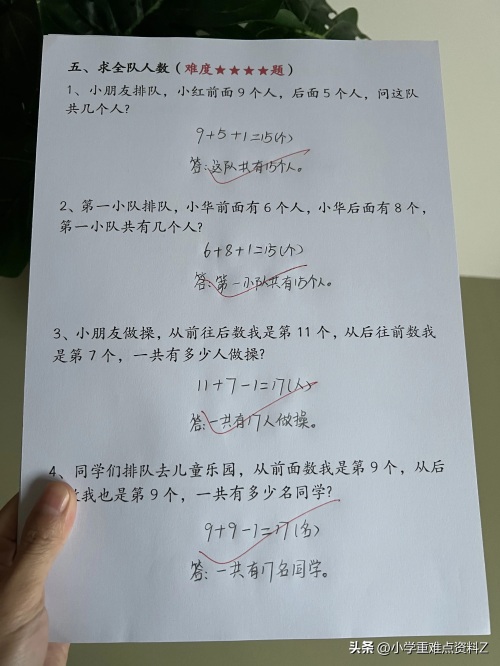 五、求全队人数（难度★★★★题）
1、小朋友排队，小红前面9个人，后面5个人，问这队
共几个人？
9+5+1=15(个)
答：这队共有15个人。
2、第一小队排队，小华前面有6个人，小华后面有8个，
第一小队共有几个人？
6+8+1=15(个)
答：第一小队共有15个人。
3、小朋友做操，从前往后数我是第11个，从后往前数我
是第7个，一共有多少人做操？
11+7-1=17(人)
答：一共有17人做操。
4、同学们排队去儿童乐园，从前面数我是第9个，从后
数我也是第9个，一共有多少名同学？
9+9-1=17(名)
答：一共有17名同学。
头条 @小学重难点资料Z